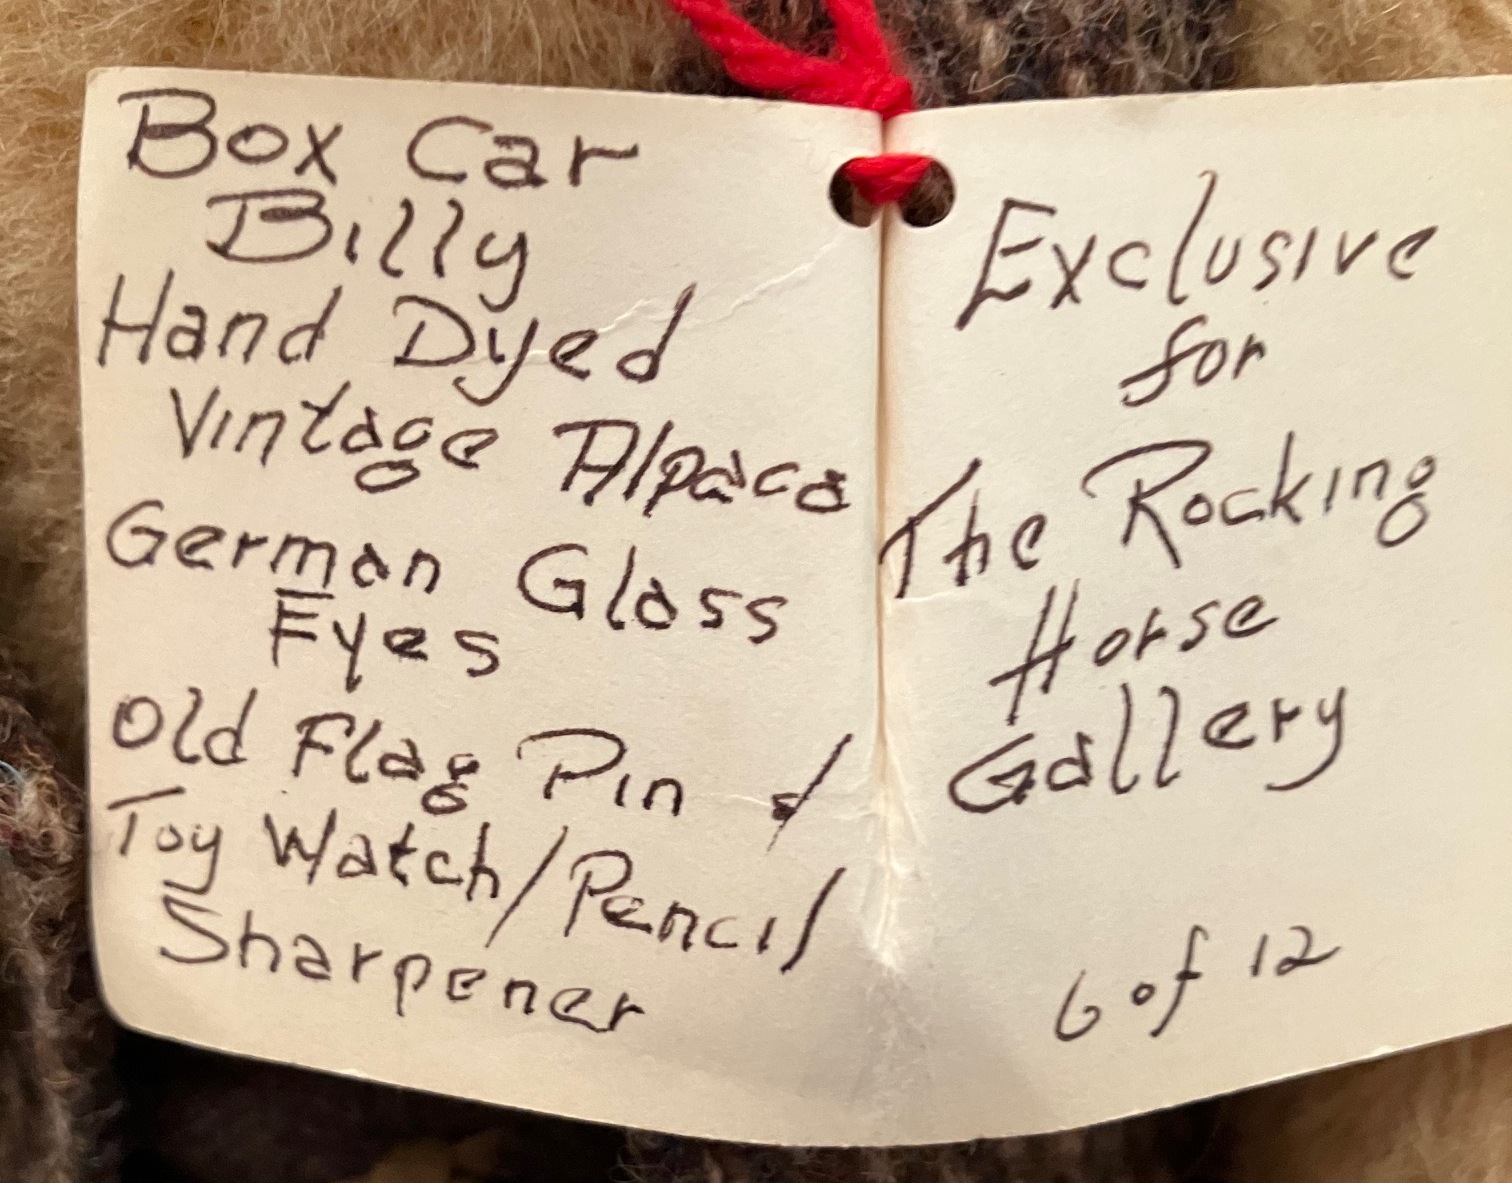 Box Car
Billy
Hand Dyed
Vintage Alpaca
German Glass
Eyes
Old Flag Pin &
Toy Watch/Pencil
Sharpener
Exclusive
for
The Rocking
Horse
Gallery
6 of 12